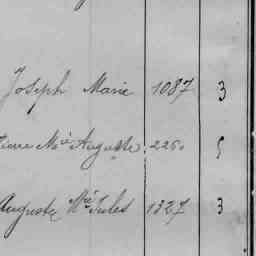 Joseph Marie 1087 3
Pierre Mie Auguste 2260 5
Auguste Mie Jules 1327 3